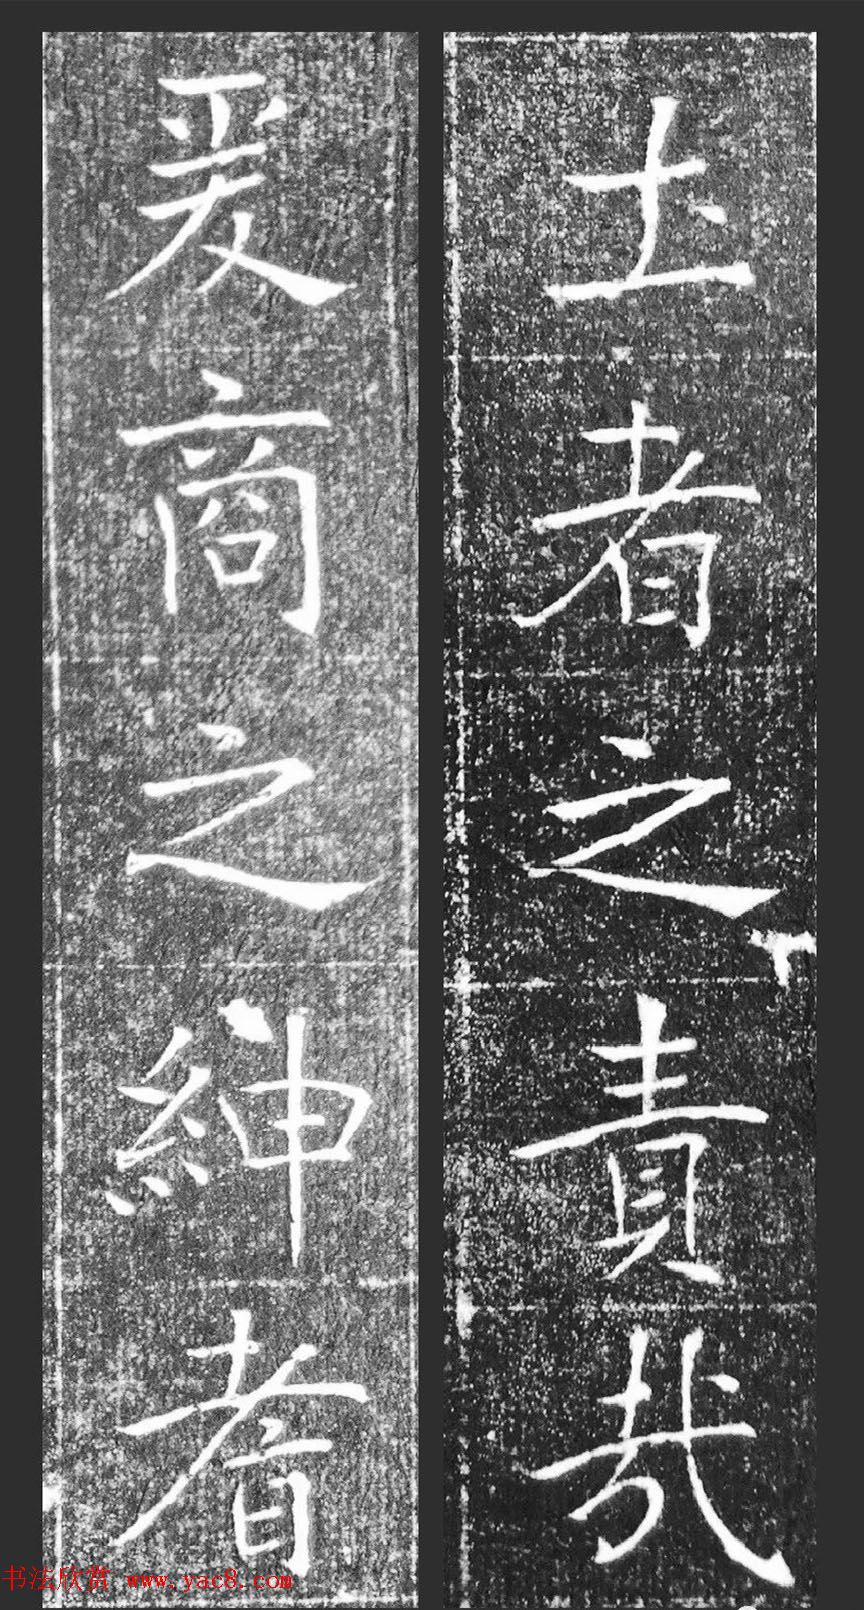 圡者之責哉
爰商之紳耆
书法欣赏 www.yac8.com